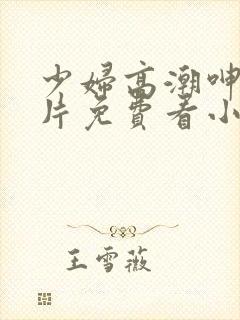 少婦高潮呻
片免費看小
王雪薇